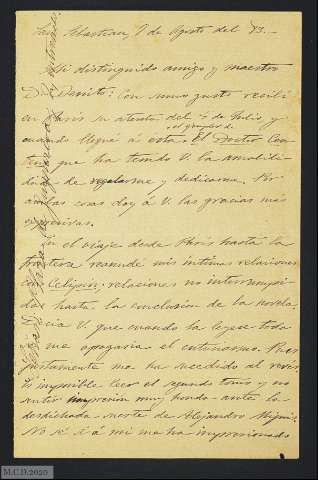 San Sebastian, 9 de Agosto del 83.–
Mi distinguido amigo y maestro
Dn. Benito: Con sumo gusto recibí
en Paris su atenta del de Julio y
cuando llegué á esta, el primer de El Doctor Cen-
teno que ha tenido V. la amabili-
dad de regalarme y dedicarme. Por
ambas cosas doy á V. las gracias mas
expresivas.
En el viaje desde Paris hasta la
frontera reanudé mis intimas relaciones
con Celipin, relaciones no interrumpi-
das hasta la conclusion de la novela.
Decia V. que cuando la leyese toda
se me apagaria el entusiasmo. Pues
justamente me ha sucedido al reves.
Es imposible leer el segundo tomo y no
sentir impresion muy honda ante la
desdichada muerte de Alejandro Miquis.
No sé si á mi me ha impresionado
M.C.D.2020